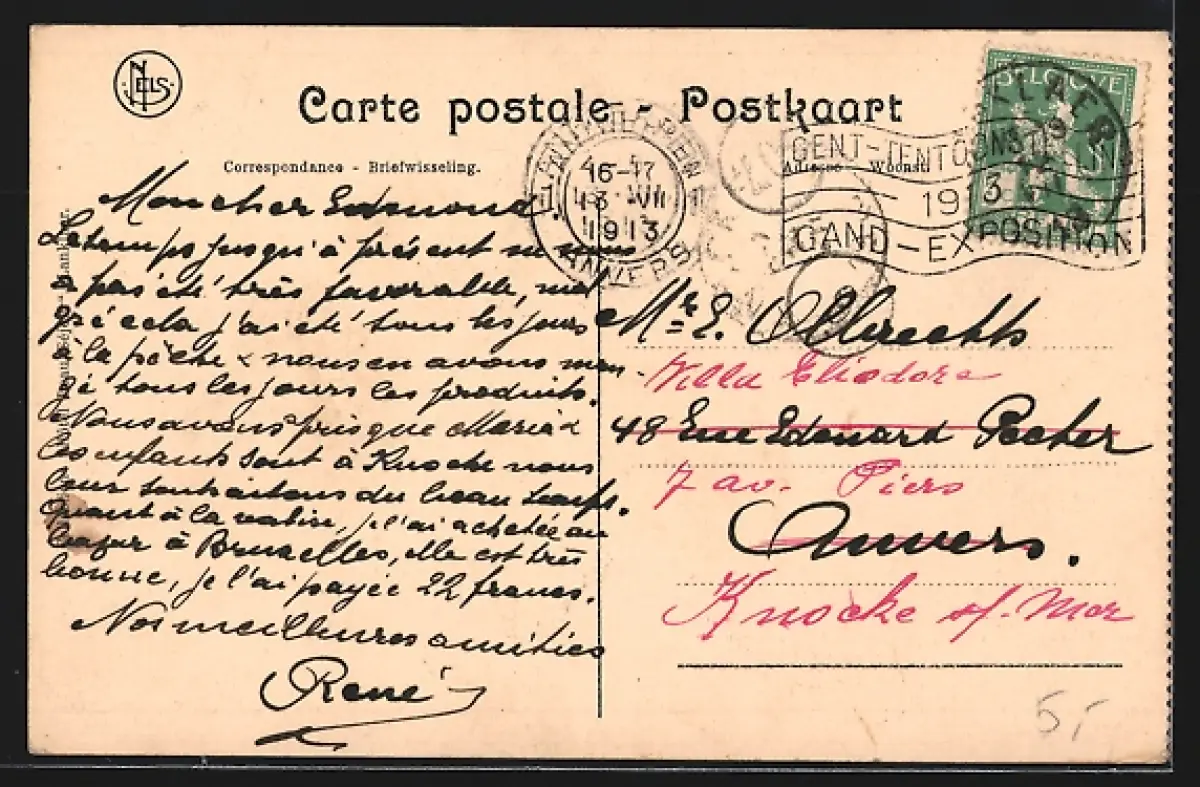 NELS
Carte postale - Postkaart
Correspondance - Briefwisseling.
Adresse Woonst
BELGIQUE
ANTWERPEN
16-17
13 VII
1913
ANVERS
GENT-TENTOONST
1913
GAND-EXPOSITION
Mon cher Edmond.
Le temps jusqu'à présent ne nous
a pas été très favorable, mal
gré cela j'ai été tous les jours
à la pêche & nous en avons man-
gé tous les jours les produits.
Nous avons pris que Maria &
les enfants sont à Knocke nous
leur souhaitons du beau temps.
Quant à la valise, je l'ai achetée au
bazar à Bruxelles, elle est très
bonne, je l'ai payée 22 francs.
Nos meilleures amitiés
René
Mr E. Olbrechts
Villa Eliodore
48 Rue Edouard Pecher
7 av. Piers
Anvers.
Knocke s/- Mer
5,-